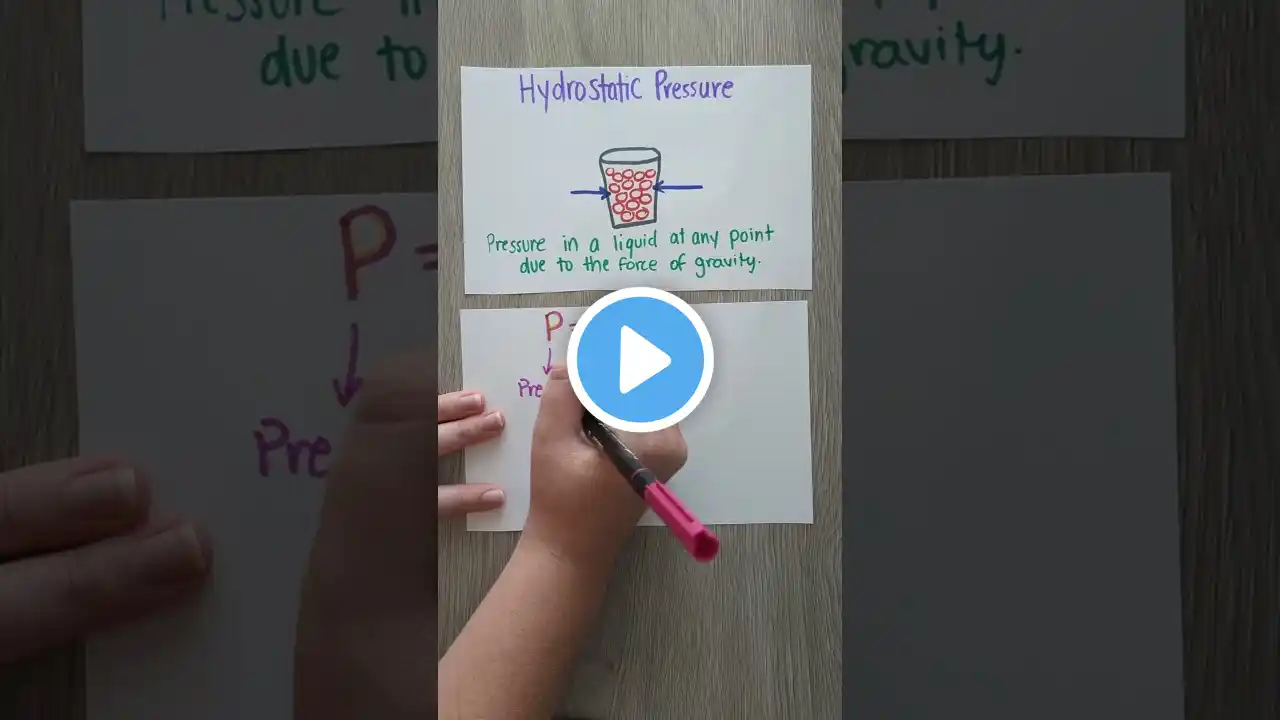 Hydrostatic Pressure
Pressure in a liquid at any point
due to the force of gravity.
P =
Pre